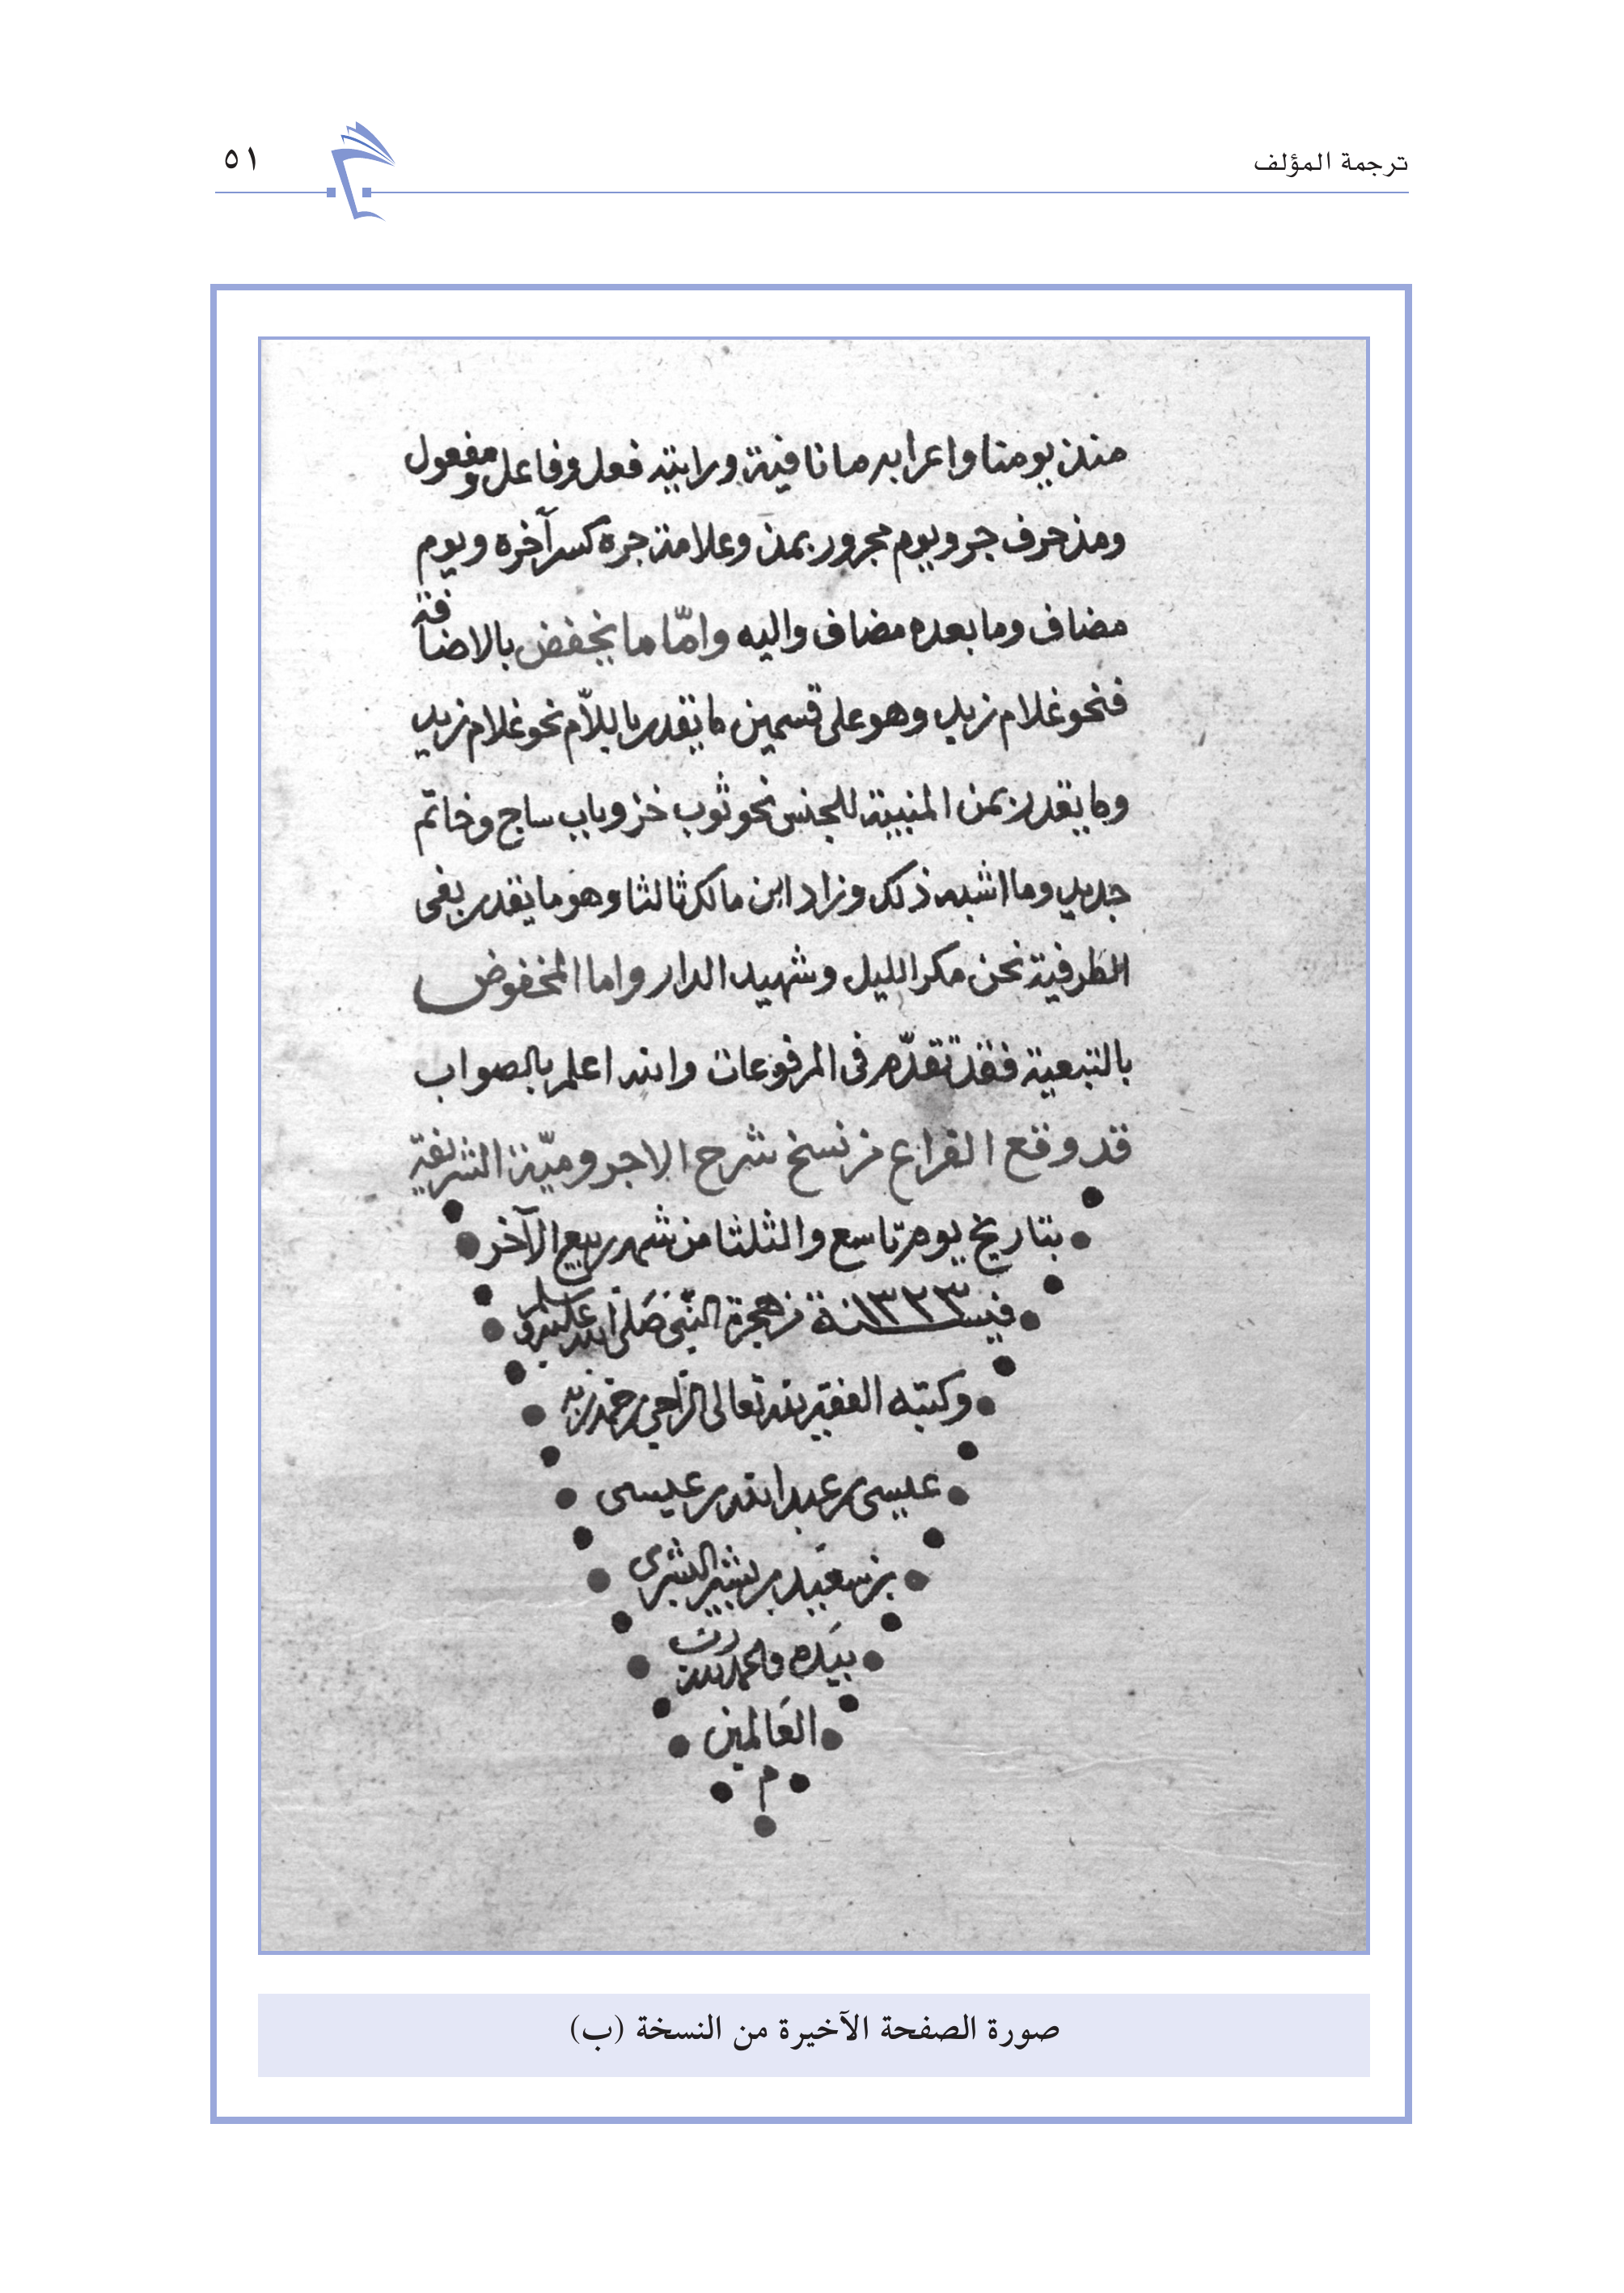 ترجمة المؤلف
٥١
منذ يومنا واعرابه ما نافية ورايته فعل وفاعل ومفعول
ومذ حرف جر ويوم مجرور بمذ وعلامة جره كسر آخره ويوم
مضاف وما بعده مضاف واليه وامّا ما يخفض بالاضافة
فنحو غلام زيد وهو على قسمين ما يقدر باللّام نحو غلام زيد
وما يقدر بمن المنبينة للجنس نحو ثوب خز وباب ساج وخاتم
جديد وما اشبه ذلك وزاد ابن مالك ثالثا وهو ما يقدر بفى
الظرفية نحن مكر الليل وشهيد الدار واما المخفوض
بالتبعية فقد تقدّم فى المرفوعات والله اعلم بالصواب
قد وقع الفراغ من نسخ شرح الاجروميّة الشريفة
بتاريخ يوم تاسع والثلثا من شهر ربيع الآخر
في سنة ١٣٢٣ من هجرة النّبى صَلى الله عليه وسلم
وكتبه الفقير لله تعالى الرّاجي رحمة ربه
عيسى بن عبد الله بن عيسى
بن سعيد بن بشير البشرى
بيَده والحمد لله رب
العَالمين
م
صورة الصفحة الآخيرة من النسخة (ب)